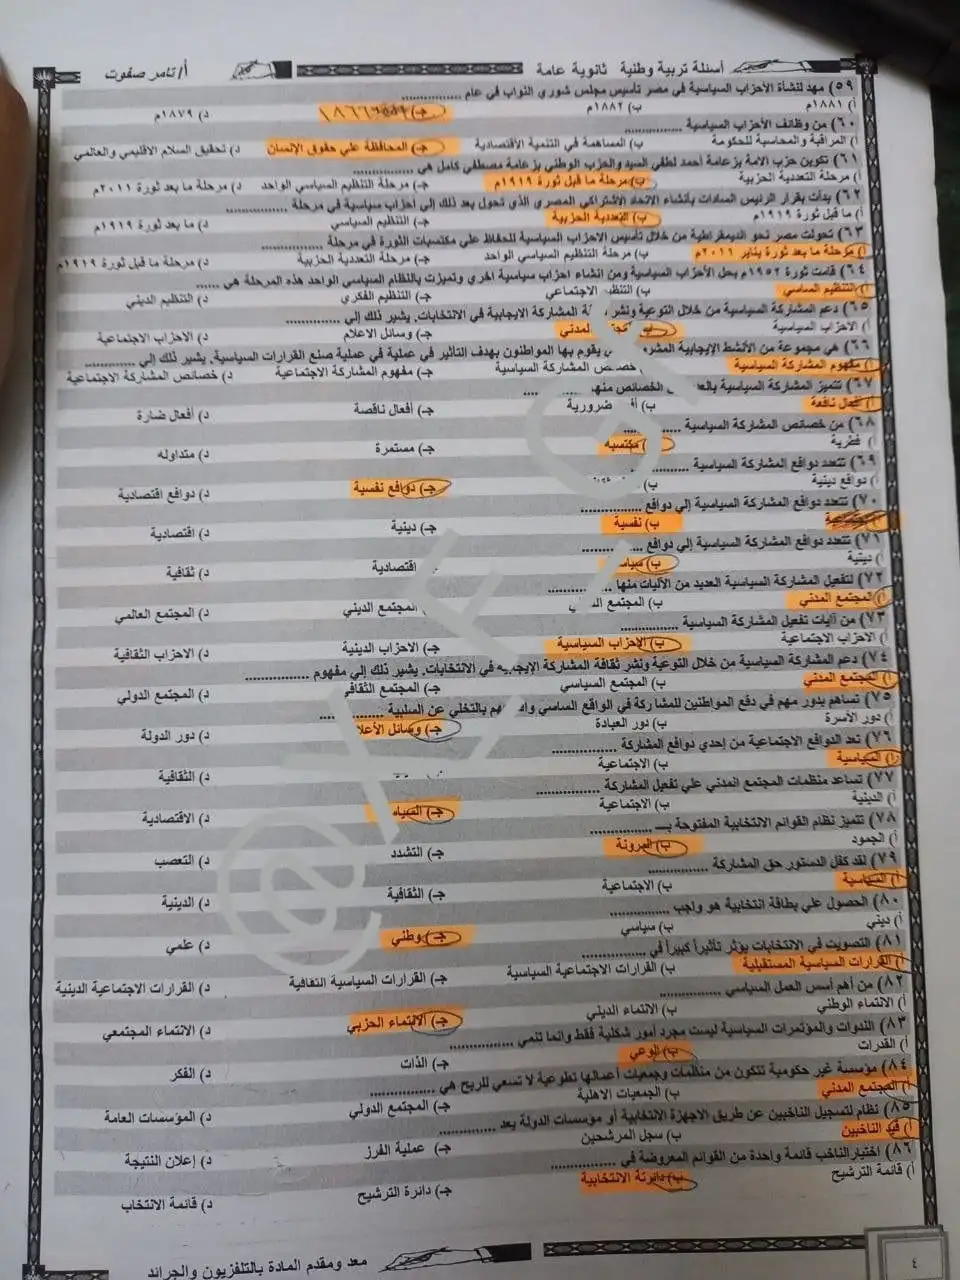 أسئلة تربية وطنية ثانوية عامة
أ/ تامر صفوت
٥٩) مهد لنشأة الأحزاب السياسية في مصر تأسيس مجلس شوري النواب في عام ..............
أ) ١٨٨١م ب) ١٨٨٢م جـ) ١٨٦٦ د) ١٨٧٩م
٦٠) من وظائف الأحزاب السياسية ..............
أ) المراقبة والمحاسبة للحكومة ب) المساهمة في التنمية الاقتصادية جـ) المحافظة علي حقوق الإنسان د) تحقيق السلام الاقليمي والعالمي
٦١) تكوين حزب الامة بزعامة أحمد لطفي السيد والحزب الوطني بزعامة مصطفي كامل هي ..............
أ) مرحلة التعددية الحزبية ب) مرحلة ما قبل ثورة ١٩١٩م جـ) مرحلة التنظيم السياسي الواحد د) مرحلة ما بعد ثورة ٢٠١١م
٦٢) بدأت بقرار الرئيس السادات بأنشاء الاتحاد الاشتراكي المصري الذي تحول بعد ذلك إلي أحزاب سياسية في مرحلة ..............
أ) ما قبل ثورة ١٩١٩م ب) التعددية الحزبية جـ) التنظيم السياسي د) ما بعد ثورة ١٩١٩م
٦٣) تحولت مصر نحو الديمقراطية من خلال تأسيس الاحزاب السياسية للحفاظ علي مكتسبات الثورة في مرحلة ..............
أ) مرحلة ما بعد ثورة يناير ٢٠١١م ب) مرحلة التنظيم السياسي الواحد جـ) مرحلة التعددية الحزبية د) مرحلة ما قبل ثورة ١٩١٩م
٦٤) قامت ثورة ١٩٥٢م بحل الأحزاب السياسية ومن انشاء احزاب سياسية اخري وتميزت بالنظام السياسي الواحد هذه المرحلة هي ......
أ) التنظيم الساسي ب) التنظيم الاجتماعي جـ) التنظيم الفكري د) التنظيم الديني
٦٥) دعم المشاركة السياسية من خلال التوعية ونشر المشاركة الايجابية في الانتخابات، يشير ذلك إلي ..............
أ) الاحزاب السياسية المدني جـ) وسائل الاعلام د) الاحزاب الاجتماعية
٦٦) هي مجموعة من الأنشط الإيجابية يقوم بها المواطنون بهدف التأثير في عملية في عملية صنع القرارات السياسية، يشير ذلك إلي ..............
أ) مفهوم المشاركة السياسية خصائص المشاركة السياسية جـ) مفهوم المشاركة الاجتماعية د) خصائص المشاركة الاجتماعية
٦٧) تتميز المشاركة السياسية الخصائص منها ..............
أ) أفعال نافعة ب) ضرورية جـ) أفعال ناقصة د) أفعال ضارة
٦٨) من خصائص المشاركة السياسية ..............
أ) فطرية مكتسبه جـ) مستمرة د) متداوله
٦٩) تتعدد دوافع المشاركة السياسية ..............
أ) دوافع دينية ب) جـ) دوافع نفسية د) دوافع اقتصادية
٧٠) تتعدد دوافع المشاركة السياسية إلي دوافع ..............
ب) نفسية جـ) دينية د) اقتصادية
٧١) تتعدد دوافع المشاركة السياسية إلي دوافع ..............
أ) دينية ب) اقتصادية د) ثقافية
٧٢) لتفعيل المشاركة السياسية العديد من الآليات منها ..............
أ) المجتمع المدني ب) المجتمع المجتمع الديني د) المجتمع العالمي
٧٣) من آليات تفعيل المشاركة السياسية ..............
أ) الاحزاب الاجتماعية ب) الاحزاب السياسية جـ) الاحزاب الدينية د) الاحزاب الثقافية
٧٤) دعم المشاركة السياسية من خلال التوعية ونشر ثقافة المشاركة الإيجابيه في الانتخابات، يشير ذلك إلي مفهوم ..............
أ) المجتمع المدني ب) المجتمع السياسي جـ) المجتمع الثقافي د) المجتمع الدولي
٧٥) تساهم بدور مهم في دفع المواطنين للمشاركة في الواقع الساسي بالتخلي عن السلبية ..............
أ) دور الأسرة ب) دور العبادة جـ) وسائل الأعلا د) دور الدولة
٧٦) تعد الدوافع الاجتماعية من إحدي دوافع المشاركة ..............
أ) السياسية ب) الاجتماعية د) الثقافية
٧٧) تساعد منظمات المجتمع المدني علي تفعيل المشاركة ..............
أ) الدينية ب) الاجتماعية جـ) السياس د) الاقتصادية
٧٨) تتميز نظام القوائم الانتخابية المفتوحة بـ ..............
أ) الجمود ب) المرونة جـ) التشدد د) التعصب
٧٩) لقد كفل الدستور حق المشاركة ..............
أ) السياسية ب) الاجتماعية جـ) الثقافية د) الدينية
٨٠) الحصول علي بطاقة انتخابية هو واجب ..............
أ) ديني ب) سياسي جـ) وطني د) علمي
٨١) التصويت في الانتخابات يؤثر تأثيراً كبيراً في ..............
أ) القرارات السياسية المستقبلية ب) القرارات الاجتماعية السياسية جـ) القرارات السياسية الثقافية د) القرارات الاجتماعية الدينية
٨٢) من أهم أسس العمل السياسي ..............
أ) الانتماء الوطني ب) الانتماء الديني جـ) الانتماء الحزبي د) الانتماء المجتمعي
٨٣) الندوات والمؤتمرات السياسية ليست مجرد أمور شكلية فقط وانما تنمي ..............
أ) القدرات ب) الوعي جـ) الذات د) الفكر
٨٤) مؤسسة غير حكومية تتكون من منظمات وجمعيات أعمالها تطوعية لا تسعي للربح هي ..............
أ) المجتمع المدني ب) الجمعيات الاهلية جـ) المجتمع الدولي د) المؤسسات العامة
٨٥) نظام لتسجيل الناخبين عن طريق الاجهزة الانتخابية أو مؤسسات الدولة يعد ..............
أ) قيد الناخبين ب) سجل المرشحين جـ) عملية الفرز د) إعلان النتيجة
٨٦) اختيار الناخب قائمة واحدة من القوائم المعروضة في ..............
أ) قائمة الترشيح ب) دائرتة الانتخابية جـ) دائرة الترشيح د) قائمة الانتخاب
معد ومقدم المادة بالتلفزيون والجرائد
٤